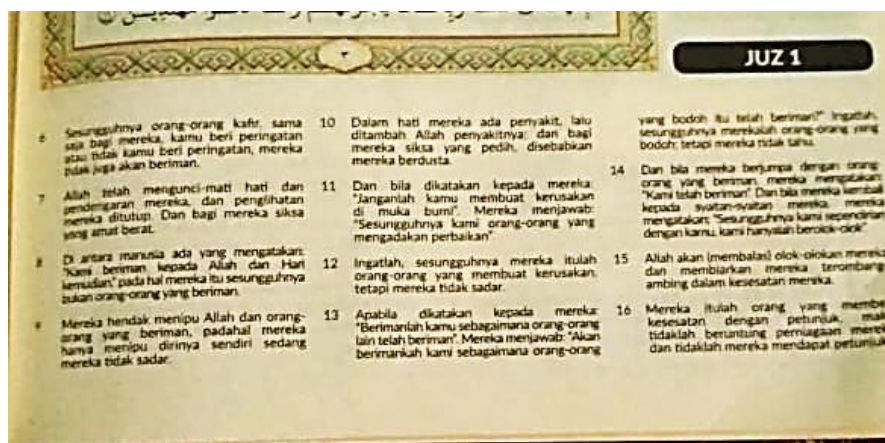 JUZ 1
6 Sesungguhnya orang-orang kafir, sama
saja bagi mereka, kamu beri peringatan
atau tidak kamu beri peringatan, mereka
tidak juga akan beriman.
7 Allah telah mengunci-mati hati dan
pendengaran mereka, dan penglihatan
mereka ditutup. Dan bagi mereka siksa
yang amat berat.
8 Di antara manusia ada yang mengatakan:
"Kami beriman kepada Allah dan Hari
kemudian," pada hal mereka itu sesungguhnya
bukan orang-orang yang beriman.
9 Mereka hendak menipu Allah dan orang-
orang yang beriman, padahal mereka
hanya menipu dirinya sendiri sedang
mereka tidak sadar.
10 Dalam hati mereka ada penyakit, lalu
ditambah Allah penyakitnya; dan bagi
mereka siksa yang pedih, disebabkan
mereka berdusta.
11 Dan bila dikatakan kepada mereka:
"Janganlah kamu membuat kerusakan
di muka bumi". Mereka menjawab:
"Sesungguhnya kami orang-orang yang
mengadakan perbaikan"
12 Ingatlah, sesungguhnya mereka itulah
orang-orang yang membuat kerusakan,
tetapi mereka tidak sadar.
13 Apabila dikatakan kepada mereka:
"Berimanlah kamu sebagaimana orang-orang
lain telah beriman". Mereka menjawab: "Akan
berimankah kami sebagaimana orang-orang
yang bodoh itu telah beriman?" Ingatlah,
sesungguhnya merekalah orang-orang yang
bodoh; tetapi mereka tidak tahu.
14 Dan bila mereka berjumpa dengan orang-
orang yang beriman, mereka mengatakan:
"Kami telah beriman". Dan bila mereka kembali
kepada syaitan-syaitan mereka, mereka
mengatakan: "Sesungguhnya kami sependirian
dengan kamu, kami hanyalah berolok-olok".
15 Allah akan (membalas) olok-olokan mereka
dan membiarkan mereka terombang-
ambing dalam kesesatan mereka.
16 Mereka itulah orang yang membe
kesesatan dengan petunjuk, mak
tidaklah beruntung perniagaan merek
dan tidaklah mereka mendapat petunjuk